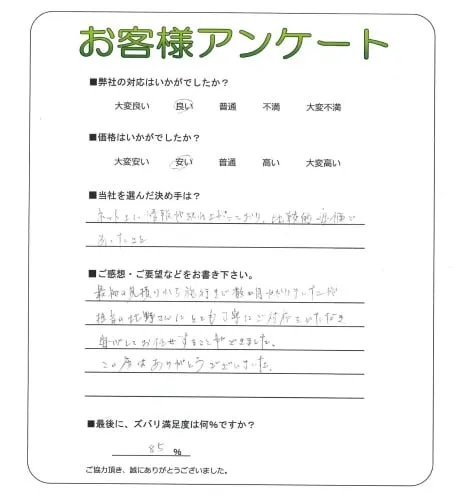 お客様アンケート
■弊社の対応はいかがでしたか？
大変良い 良い 普通 不満 大変不満
■価格はいかがでしたか？
大変安い 安い 普通 高い 大変高い
■当社を選んだ決め手は？
ネット上に情報が
比較的安価で
あったこと
■ご感想・ご要望などをお書き下さい。
最初の見積りから施行まで数ヶ月かかりましたが
担当の北野さんにとても丁寧にご対応いただき
安心してお任せすることができました。
この度はありがとうございました。
■最後に、ズバリ満足度は何%ですか？
85 %
ご協力頂き、誠にありがとうございました。